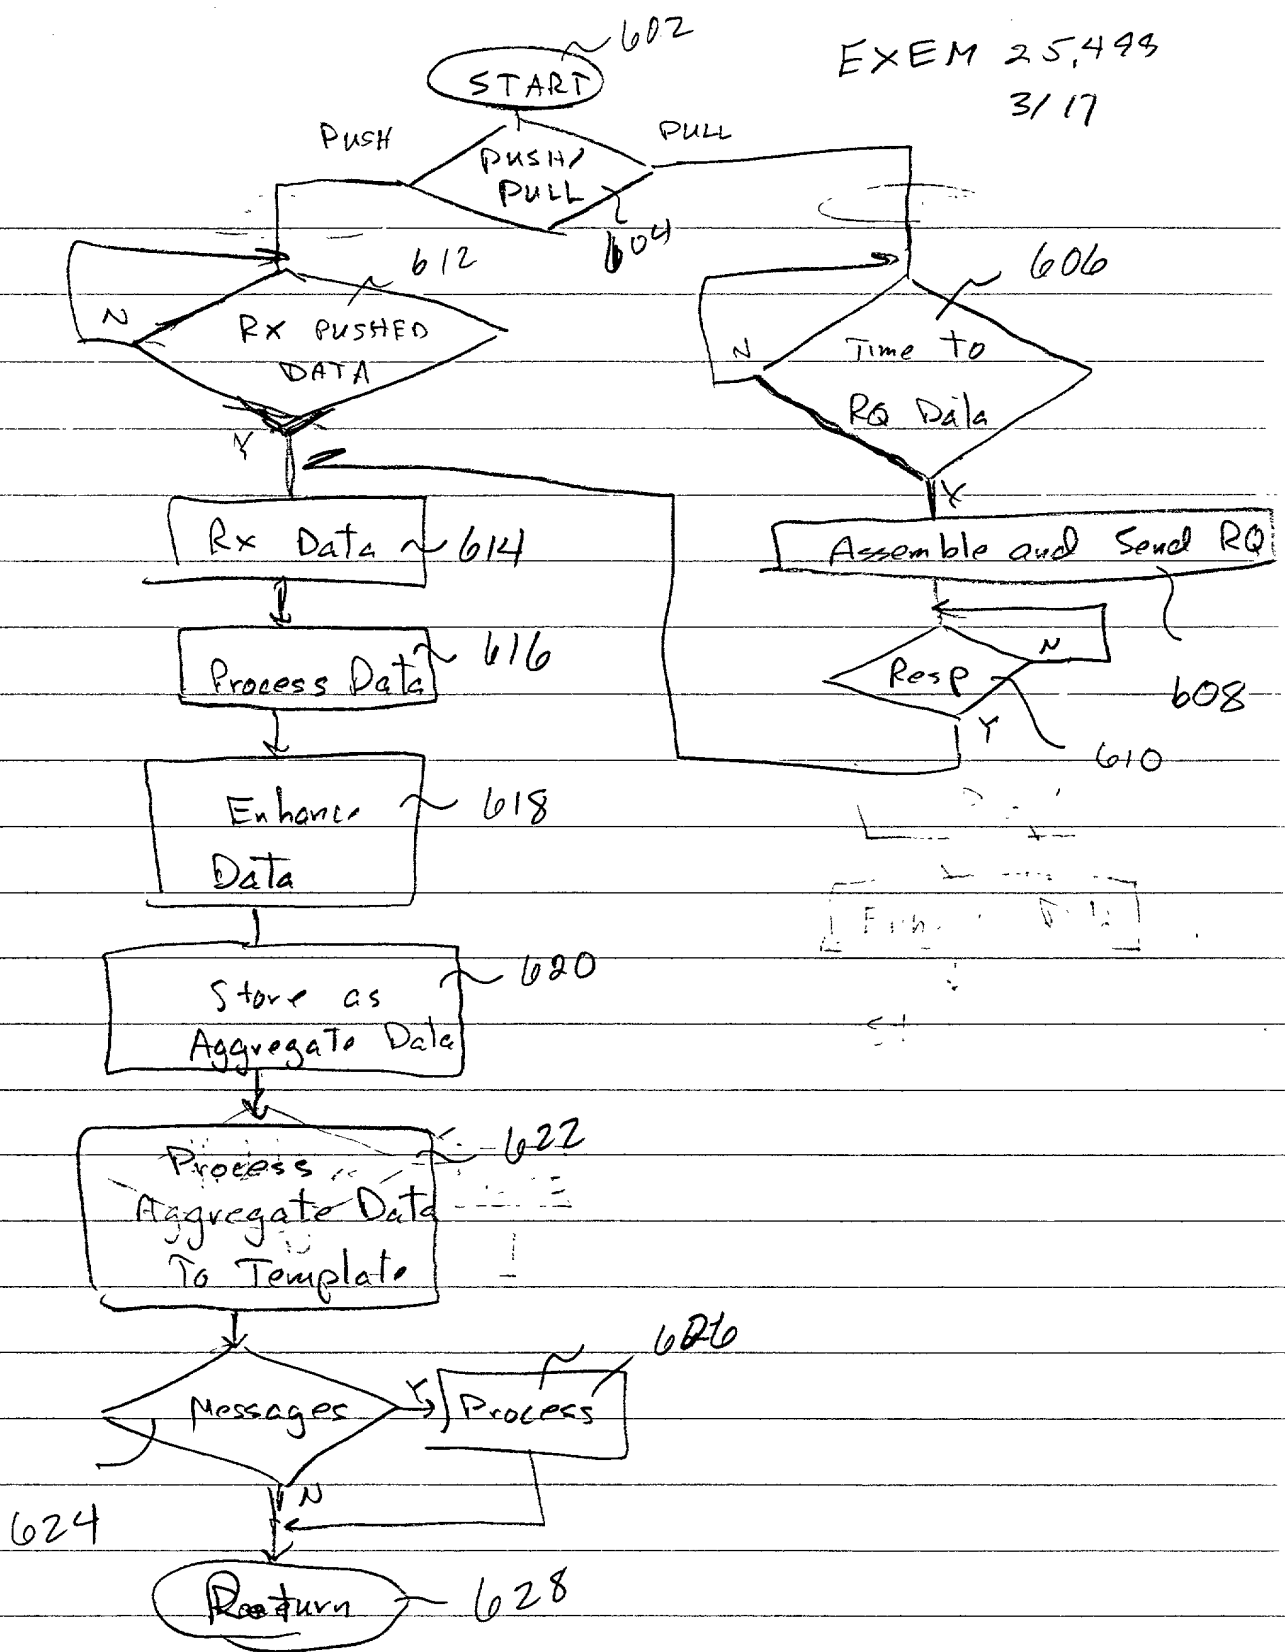 602
EXEM 25,493
3/17
START
PUSH
PULL
PUSH/
PULL
604
612
606
N
RX PUSHED
DATA
Y
N
Time to
RQ Data
Y
Rx Data
614
Assemble and Send RQ
608
Process Data
616
N
Resp
610
Y
Enhance
Data
618
Store as
Aggregate Data
620
Process
Aggregate Data
To Template
622
Messages
624
Y
Process
626
N
Return
628